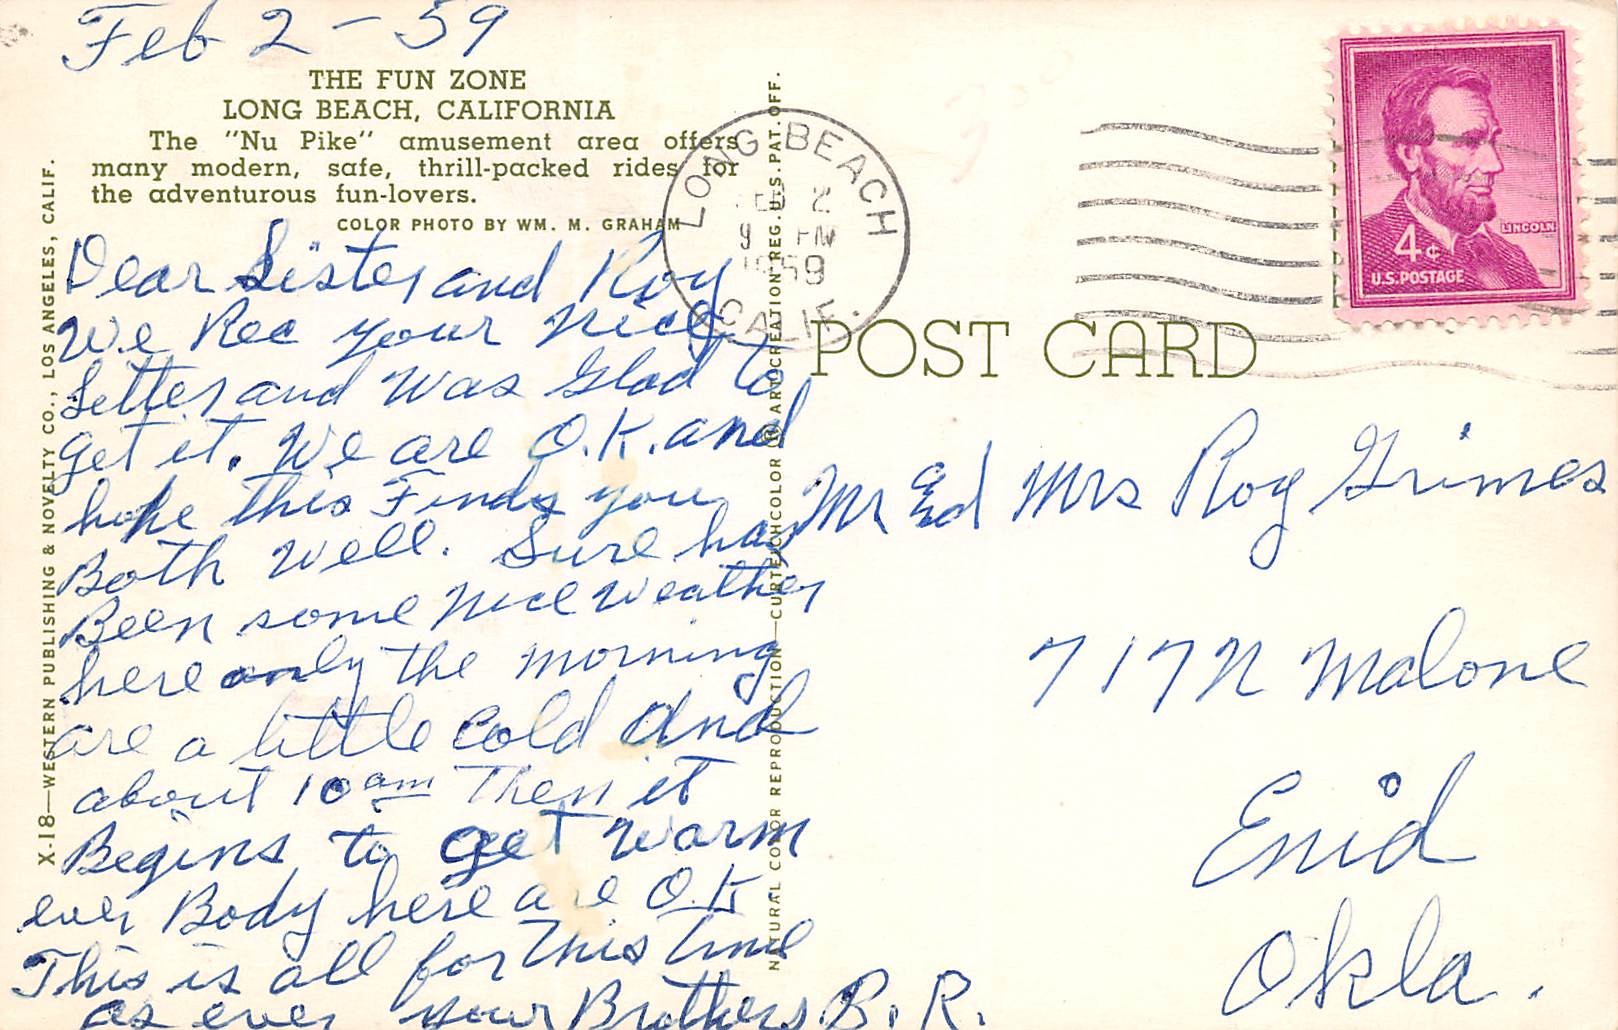 Feb 2 - 59
THE FUN ZONE
LONG BEACH, CALIFORNIA
The "Nu Pike" amusement area offers
many modern, safe, thrill-packed rides for
the adventurous fun-lovers.
COLOR PHOTO BY WM. M. GRAHAM
Dear Sister and Roy
We Rec your nice
Letter and Was Glad to
get it. We are O.K. and
hope this Finds you
Both Well. Sure has
Been some Nice Weather
here only the morning
are a little Cold And
about 10 am Then it
Begins to get warm
ever Body here are O.K
This is all for this time
as ever your Brothers. B. R.
X-18—WESTERN PUBLISHING & NOVELTY CO., LOS ANGELES, CALIF.
NATURAL COLOR REPRODUCTION—CURTEICHCOLOR ® ART-CREATION REG. U.S. PAT. OFF.
LONG BEACH
FEB 2
9 PM
1959
CALIF.
LINCOLN
4¢
U.S. POSTAGE
POST CARD
Mr Ed Mrs Roy Grimes
717 N Malone
Enid
Okla.